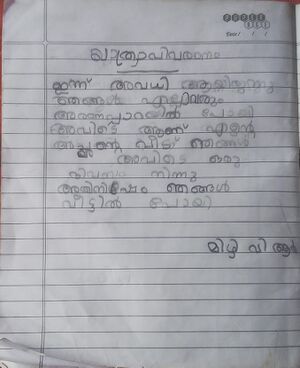 യാത്രാവിവരണം
ഇന്ന് അവധി ആയിരുന്നു
ഞങ്ങൾ എല്ലാവരും
അരണപ്പാറയിൽ പോയി
അവിടെ ആണ് എന്റെ
അച്ഛന്റെ വീട് ഞങ്ങൾ
അവിടെ ഒരു
ദിവസം നിന്നു
അതിനുശേഷം ഞങ്ങൾ
വീട്ടിൽ പോയി
മിഴി വി ആർ